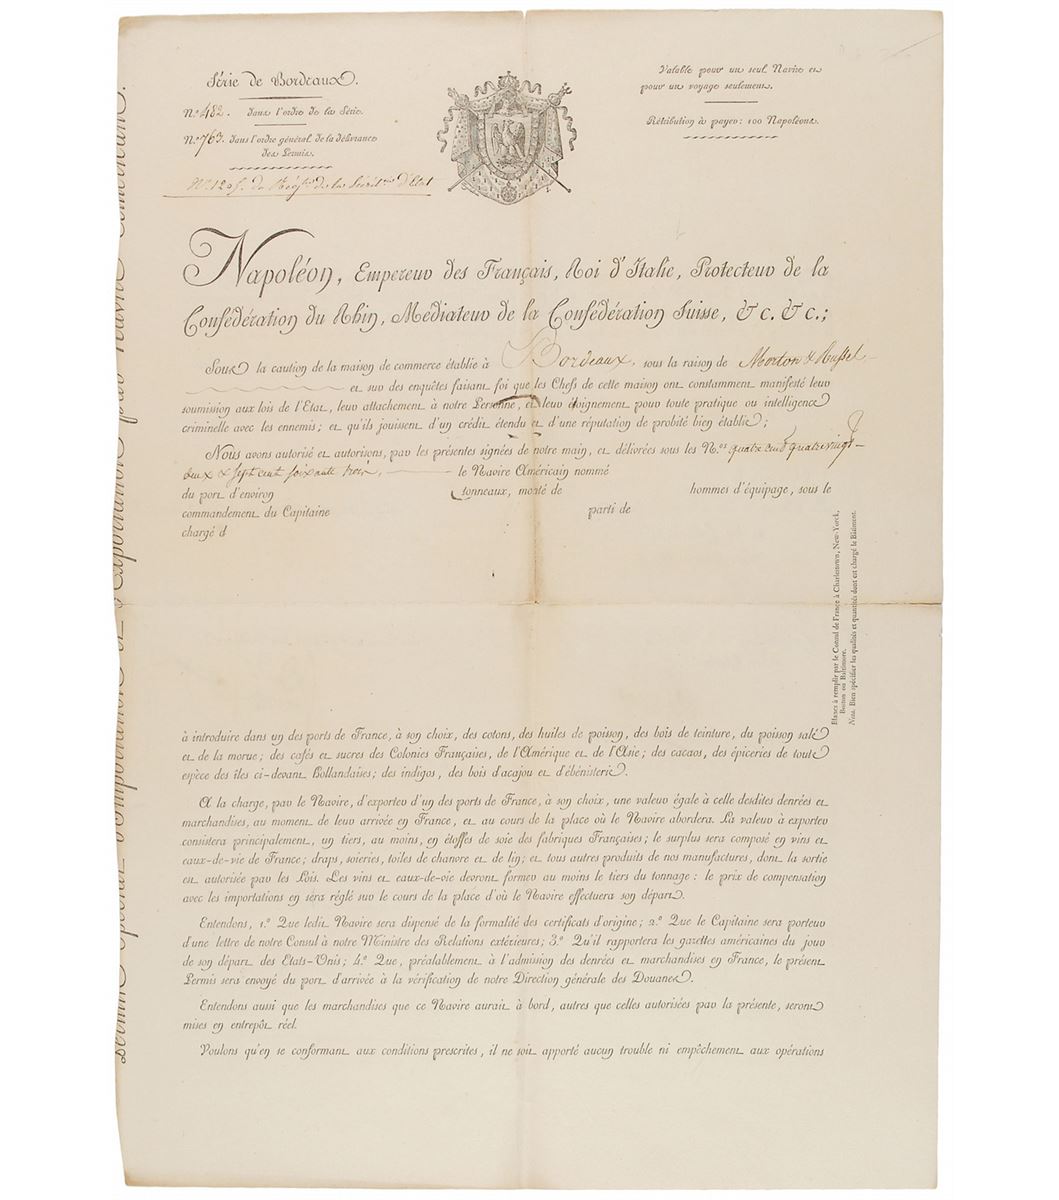 Série de Bordeaux.
N.º 482. dans l'ordre de la Série.
N.º 763. dans l'ordre général de la délivrance
des Permis.
Nº 1205. du Rég.tre de la Secrét.rie d'Etat
Valable pour un seul Navire et
pour un voyage seulement.
Rétribution à payer : 100 Napoléons.
Napoléon, Empereur des Français, Roi d'Italie, Protecteur de la
Confédération du Rhin, Médiateur de la Confédération Suisse, &c. &c.;
Sous la caution de la maison de commerce établie à Bordeaux, sous la raison de Morton & Russel
et sur des enquêtes faisant foi que les Chefs de cette maison ont constamment manifesté leur
soumission aux lois de l'Etat, leur attachement à notre Personne, et leur éloignement pour toute pratique ou intelligence
criminelle avec les ennemis; et qu'ils jouissent d'un crédit étendu et d'une réputation de probité bien établie;
Nous avons autorisé et autorisons, par les présentes signées de notre main, et délivrées sous les N.os quatre cent quatrevingt-
deux & sept cent soixante trois, le Navire Américain nommé
du port d'environ tonneaux, monté de hommes d'équipage, sous le
commandement du Capitaine parti de
chargé d
à introduire dans un des ports de France, à son choix, des cotons, des huiles de poisson, des bois de teinture, du poisson salé
et de la morue; des cafés et sucres des Colonies Françaises, de l'Amérique et de l'Asie; des cacaos, des épiceries de toute
espèce des îles ci-devant Hollandaises; des indigos, des bois d'acajou et d'ébénisterie.
A la charge, par le Navire, d'exporter d'un des ports de France, à son choix, une valeur égale à celle desdites denrées et
marchandises, au moment de leur arrivée en France, et au cours de la place où le Navire abordera. La valeur à exporter
consistera principalement, un tiers, au moins, en étoffes de soie des fabriques Françaises; le surplus sera composé en vins et
eaux-de-vie de France; draps, soieries, toiles de chanvre et de lin; et tous autres produits de nos manufactures, dont la sortie
est autorisée par les Lois. Les vins et eaux-de-vie devront former au moins le tiers du tonnage : le prix de compensation
avec les importations en sera réglé sur le cours de la place d'où le Navire effectuera son départ.
Entendons, 1.º Que ledit Navire sera dispensé de la formalité des certificats d'origine; 2.º Que le Capitaine sera porteur
d'une lettre de notre Consul à notre Ministre des Relations extérieures; 3.º Qu'il rapportera les gazettes américaines du jour
de son départ des Etats-Unis; 4.º Que, préalablement à l'admission des denrées et marchandises en France, le présent
Permis sera envoyé du port d'arrivée à la vérification de notre Direction générale des Douanes.
Entendons aussi que les marchandises que ce Navire aurait à bord, autres que celles autorisées par la présente, seront
mises en entrepôt réel.
Voulons qu'en se conformant aux conditions prescrites, il ne soit apporté aucun trouble ni empêchement aux opérations
Blancs à remplir par le Consul de France à Charlestown, New-Yorck,
Boston ou Baltimore.
Nota. Bien spécifier les qualités et quantités dont est chargé le Bâtiment.